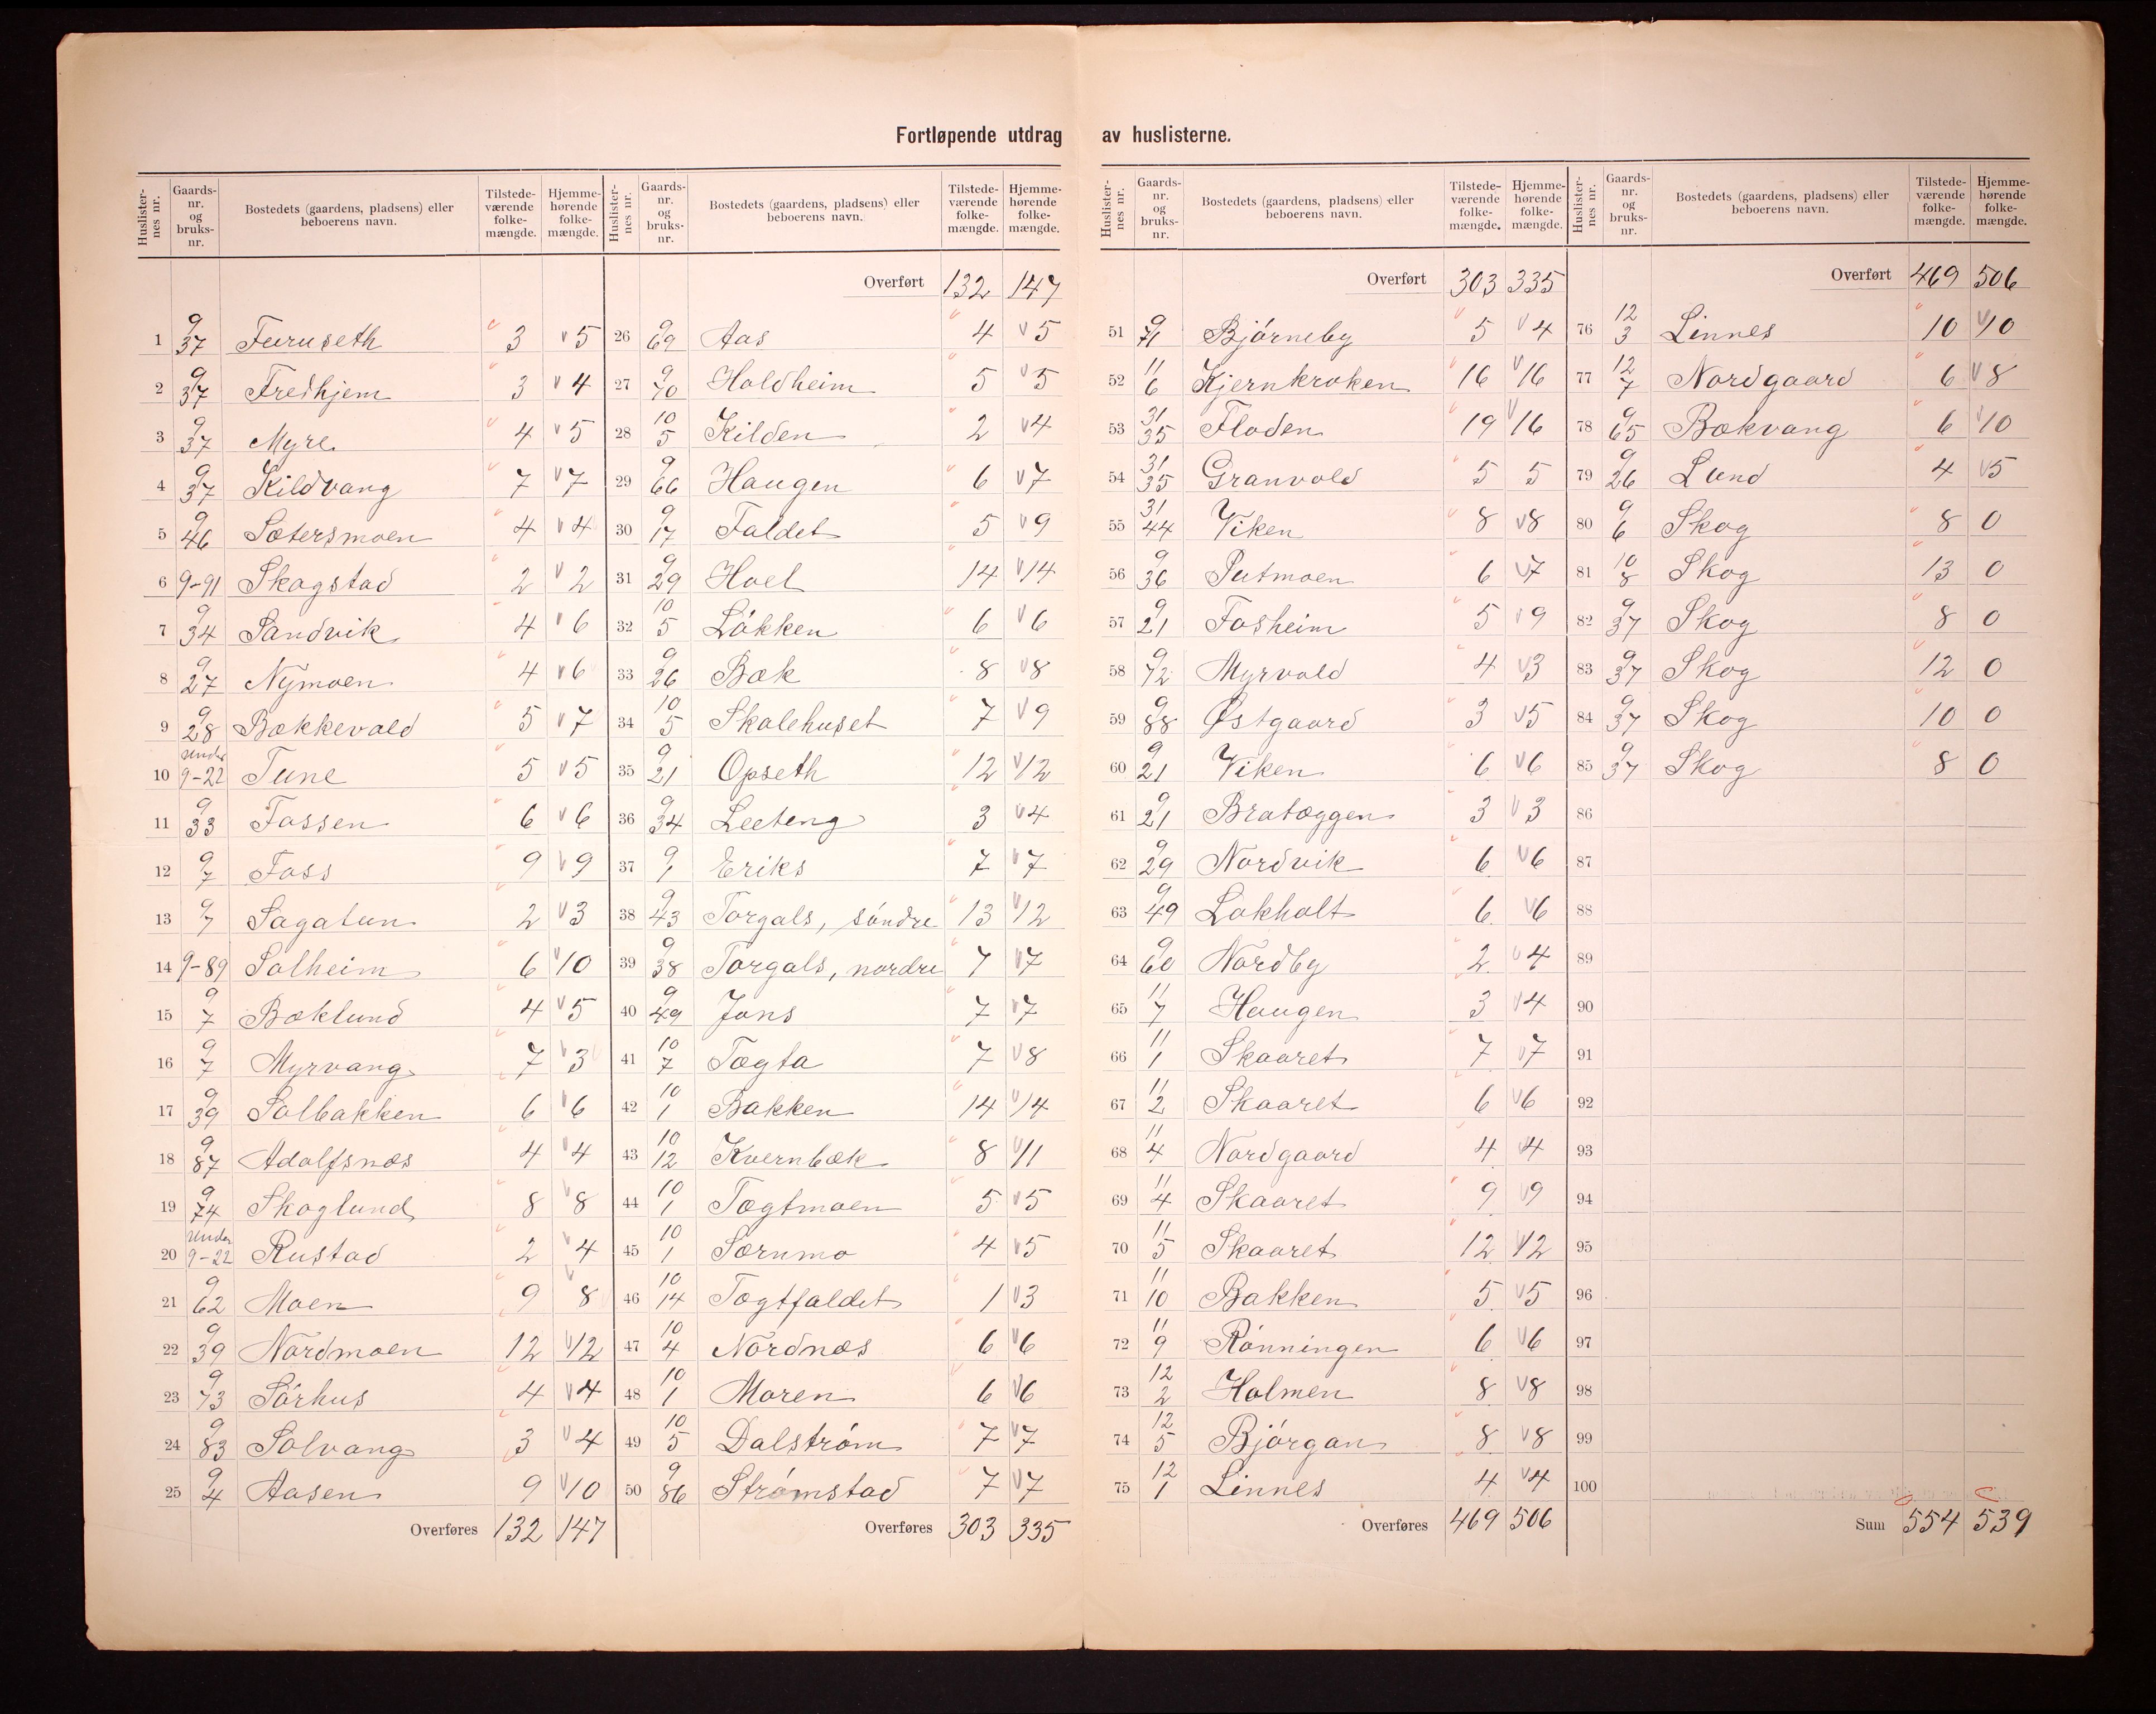 Fortløpende utdrag av huslisterne.
Huslister-nes nr. Gaards-nr. og bruks-nr. Bostedets (gaardens, pladsens) eller beboerens navn. Tilstede-værende folke-mængde. Hjemme-hørende folke-mængde.
1 9/37 Furuseth 3 v 5
2 9/37 Fredhjem 3 v 4
3 9/37 Myre 4 v 5
4 9/37 Kildvang 7 v 7
5 9/46 Sætersmoen 4 v 4
6 9-91 Skogstad 2 v 2
7 9/34 Sandvik 4 v 6
8 9/27 Nymoen 4 v 6
9 9/28 Bækkevold 5 v 7
10 under 9-22 Tune 5 v 5
11 9/33 Fossen 6 v 6
12 9/7 Foss 9 v 9
13 9/7 Sagatun 2 v 3
14 9-89 Solheim 6 v 10
15 9/7 Bæklund 4 v 5
16 9/7 Myrvang 7 v 3
17 9/39 Solbakken 6 v 6
18 9/87 Adolfsnæs 4 v 4
19 9/74 Skoglund 8 v 8
20 under 9-22 Rustad 2 v 4
21 9/62 Moen 9 v 8
22 9/39 Nordmoen 12 v 12
23 9/73 Sörhus 4 v 4
24 9/83 Solvang 3 v 4
25 9/4 Aasen 9 v 10
Overføres 132 147
Huslister-nes nr. Gaards-nr. og bruks-nr. Bostedets (gaardens, pladsens) eller beboerens navn. Tilstede-værende folke-mængde. Hjemme-hørende folke-mængde.
Overført 132 147
26 9/69 Aas 4 v 5
27 9/70 Holdheim 5 v 5
28 10/5 Kilden 2 v 4
29 9/66 Haugen 6 v 7
30 9/17 Faldet 5 v 9
31 9/29 Hoel 14 v 14
32 10/5 Lökken 6 v 6
33 9/26 Bæk 8 v 8
34 10/5 Skolehuset 7 v 9
35 9/21 Opseth 12 v 12
36 9/34 Leeteng 3 v 4
37 9/1 Eriks 7 v 7
38 9/43 Torgals, söndre 13 v 12
39 9/38 Torgals, nordre 7 v 7
40 9/49 Jons 7 v 7
41 10/7 Tøgta 7 v 8
42 10/1 Bakken 14 v 14
43 10/12 Kvernbæk 8 v 11
44 10/1 Tøgtmoen 5 v 5
45 10/1 Sørnmo 4 v 5
46 10/14 Tøgtfaldet 1 v 3
47 10/4 Nordnæs 6 v 6
48 10/1 Moren 6 v 6
49 10/5 Dalström 7 v 7
50 9/86 Strömstad 7 v 7
Overføres 303 335
Huslister-nes nr. Gaards-nr. og bruks-nr. Bostedets (gaardens, pladsens) eller beboerens navn. Tilstede-værende folke-mængde. Hjemme-hørende folke-mængde.
Overført 303 335
51 9/71 Björneby 5 v 4
52 11/6 Kjernkroken 16 v 16
53 31/35 Floden 19 v 16
54 31/35 Granvold 5 5
55 31/44 Viken 8 v 8
56 9/36 Putmoen 6 v 7
57 9/21 Fosheim 5 v 9
58 9/72 Myrvold 4 v 3
59 9/88 Østgaard 3 v 5
60 9/21 Viken 6 v 6
61 9/21 Bratæggen 3 v 3
62 9/29 Nordvik 6 v 6
63 9/49 Lokholt 6 v 6
64 9/60 Nordby 2 v 4
65 11/7 Haugen 3 v 4
66 11/1 Skaaret 7 v 7
67 11/2 Skaaret 6 v 6
68 11/4 Nordgaard 4 v 4
69 11/4 Skaaret 9 v 9
70 11/5 Skaaret 12 v 12
71 11/10 Bakken 5 v 5
72 11/9 Rönningen 6 v 6
73 12/2 Holmen 8 v 8
74 12/5 Björgan 8 v 8
75 12/1 Linnes 4 v 4
Overføres 469 506
Huslister-nes nr. Gaards-nr. og bruks-nr. Bostedets (gaardens, pladsens) eller beboerens navn. Tilstede-værende folke-mængde. Hjemme-hørende folke-mængde.
Overført 469 506
76 12/3 Linnes 10 v 10
77 12/7 Nordgaard 6 v 8
78 9/65 Bækvang 6 v 10
79 9/26 Lund 4 v 5
80 9/6 Skog 8 0
81 10/8 Skog 13 0
82 9/37 Skog 8 0
83 9/37 Skog 12 0
84 9/37 Skog 10 0
85 9/37 Skog 8 0
86
87
88
89
90
91
92
93
94
95
96
97
98
99
100
Sum 554 539